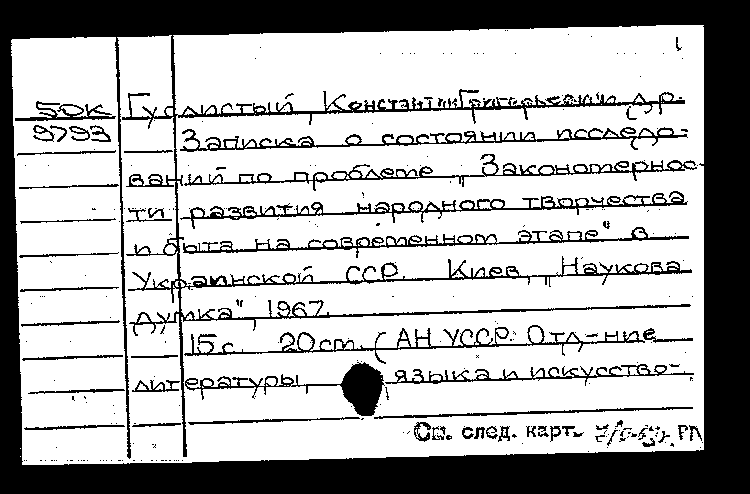 1
50К Гуслистый, Константин Григорьевич и др.
9793 Записка о состоянии исследо-
ваний по проблеме „Закономернос-
ти развития народного творчества
и быта на современном этапе" в
Украинской ССР. Киев, „Наукова
думка", 1967.
15 с. 20 см. (АН УССР. Отд-ние
литературы, языка и искусство-
См. след. карт. РЛ